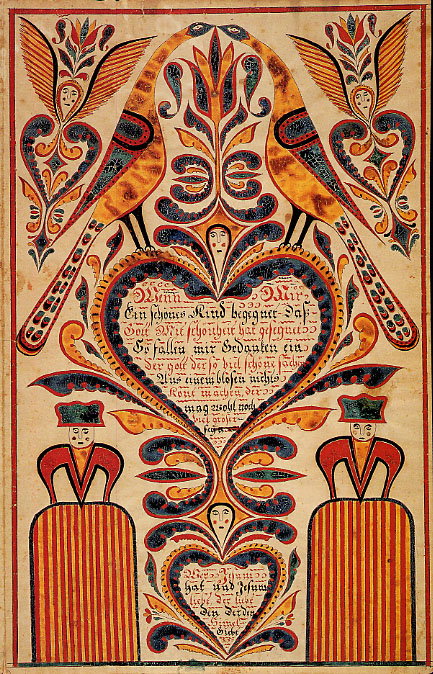 Wenn Mir
Ein schönes Kind begegnet Daß
Gott Mit schönheit hat gesegnet
Es fallen mir Gedanken ein
der gott der so viel schöne sachen
Aus einem blosen nichts
Kont machen, der
mag wohl noch
viel größer
seyn
Wer Jesum
hat und Jesum
liebt der
den der den
Himel
Giebt